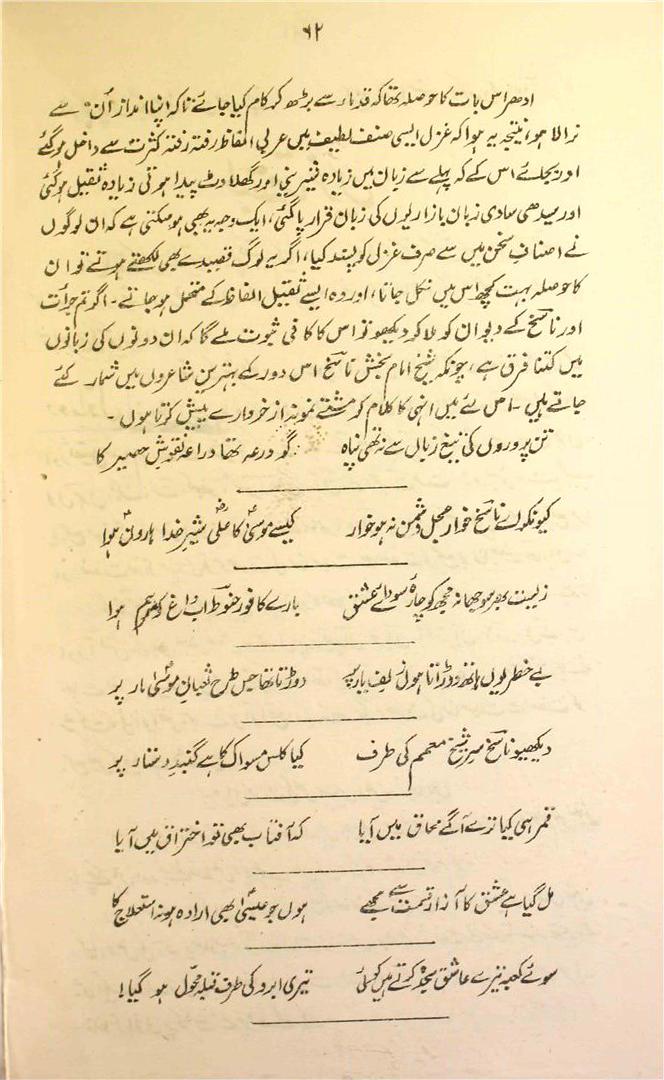 ۶۲
ادھر اس بات کا حوصلہ تھا کہ قدماء سے بڑھ کر کام کیا جائے تاکہ اپنا انداز اُن سے
نرالا ہو، نتیجہ یہ ہوا کہ غزل ایسی صنف لطیف میں عربی الفاظ رفتہ رفتہ کثرت سے داخل ہوگئے
اور بجائے اس کے کہ پہلے سے زبان میں زیادہ شیرینی اور گھلاوٹ پیدا ہوتی زیادہ ثقیل ہوگئی
اور سیدھی سادی زبان بازاریوں کی زبان قرار پاگئی، ایک وجہ یہ بھی ہوسکتی ہے کہ ان لوگوں
نے اصنافِ سخن میں سے صرف غزل کو پسند کیا، اگر یہ لوگ قصیدے بھی لکھتے ہوتے تو ان
کا حوصلہ بہت کچھ اس میں نکل جاتا، اور وہ ایسے ثقیل الفاظ کے متحمل ہوجاتے۔ اگر تم جرأت
اور ناسخ کے دیوان کو ملا کر دیکھو تو اس کا کافی ثبوت ملے گا کہ ان دونوں کی زبانوں
میں کتنا فرق ہے، چونکہ شیخ امام بخش ناسخ اس دور کے بہترین شاعروں میں شمار کئے
جاتے ہیں۔ اس لئے میں انہی کا کلام کہ مشتے نمونہ از خروارے پیش کرتا ہوں۔
تن پروروں کی تیغ زباں سے نہ تھی پناہ گو درعہ تھا دراعہ نقوش حصیر کا
کیونکر اے ناسخ خوار محل دشمن نہ ہو خوار کیسے موسیٰؑ کا علیؓ شیر خدا ہارونؑ ہوا
زیست بھر سوجھا نہ مجھ کو چارۂ سودائے عشق بارے کافور حنوط اب داغ کو مرہم ہوا
بے خطر یوں ہاتھ دوڑاتا ہوں زلف یار پر دوڑتا تھا جس طرح ثعبانِ موسیٰؑ مار پر
دیکھیو ناسخ سرِ شیخ معمم کی طرف کیا کلس مسواک کا ہے گنبدِ دستار پر
قمر ہی کیا ترے آگے محاق میں آیا کہ آفتاب بھی تو احتراق میں آیا
مل گیا ہے عشق کا آزار قسمت سے مجھے ہوں جو عیسیٰؑ بھی ارادہ ہو نہ استعلاج کا
سوئے کعبہ تیرے عاشق سجدہ کرتے ہیں کوئی تیری ابرو کی طرف قبلہ محوّل ہو گیا!